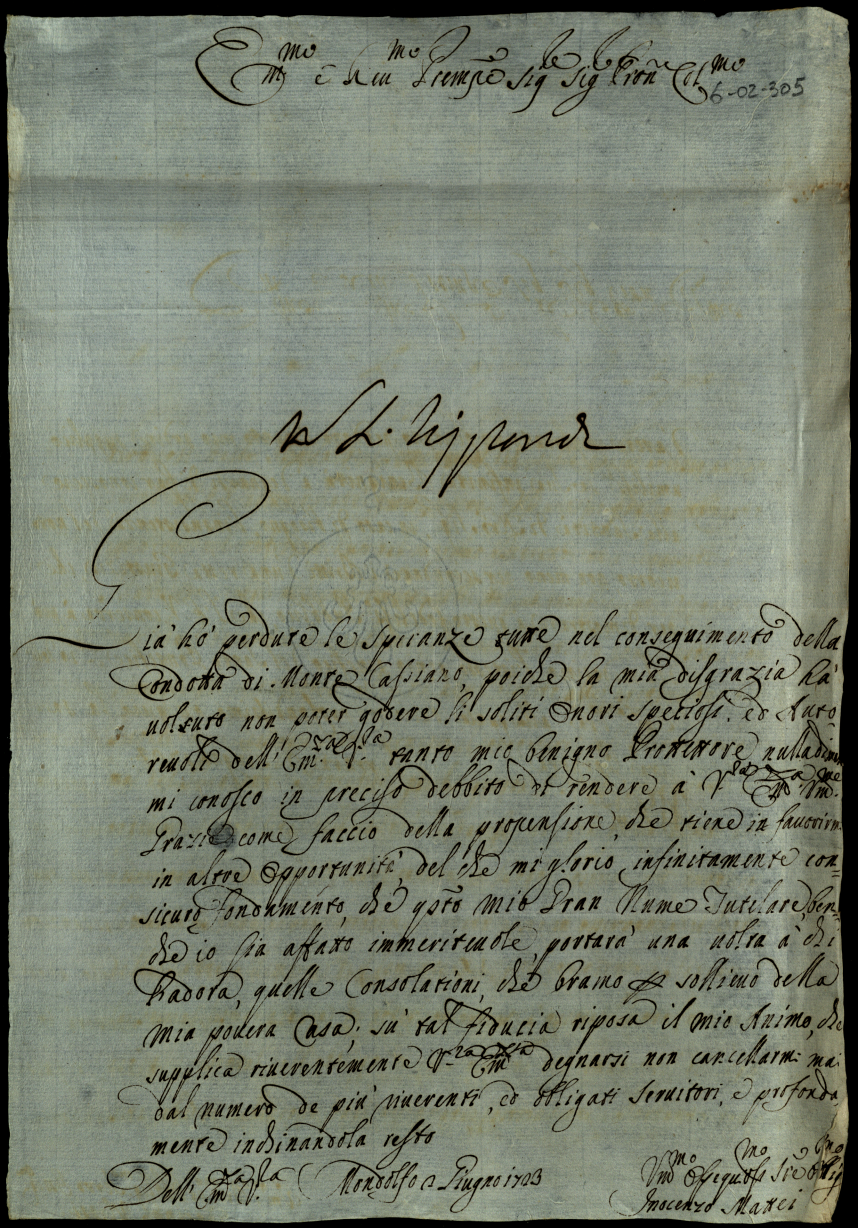 Em.mo e Rev.mo Prencipe Sig.re Sig.re Pron Col.mo
6-02-305
Già hò perdute le speranze tutte nel conseguimento della
Condotta di Monte Cassiano, poiche la mia disgrazia hà
uolsuto non poter godere li soliti onori speciosi, ed Auto
reuoli dell' Em.za S.a tanto mio benigno Protettore, nulladimen
mi conosco in preciso debbito di rendere à V.ra Em.za Um.me
Grazie come faccio della propensione, che tiene in fauorirm
in altre opportunità, del che mi glorio infinitamente con
sicuro fondamento, che q.sto mio Gran Nume Tutelare, ben
che io sia affatto immeriteuole, portarà una uolta à chi
l'adora, quelle Consolationi, che bramo p sollieuo della
mia pouera Casa; sù tal fiducia riposa il mio Animo, che
supplica riuerentemente V.ra Em.za degnarsi non cancellarmi mai
dal numero de più riuerenti, ed obligati seruitori, e profonda
mente inchinandola resto
Dell' Em.za S.a Mondolfo 2 Giugno 1723
Um.mo Ossequios.mo Se Oblig.mo
Inocenzo Mattei